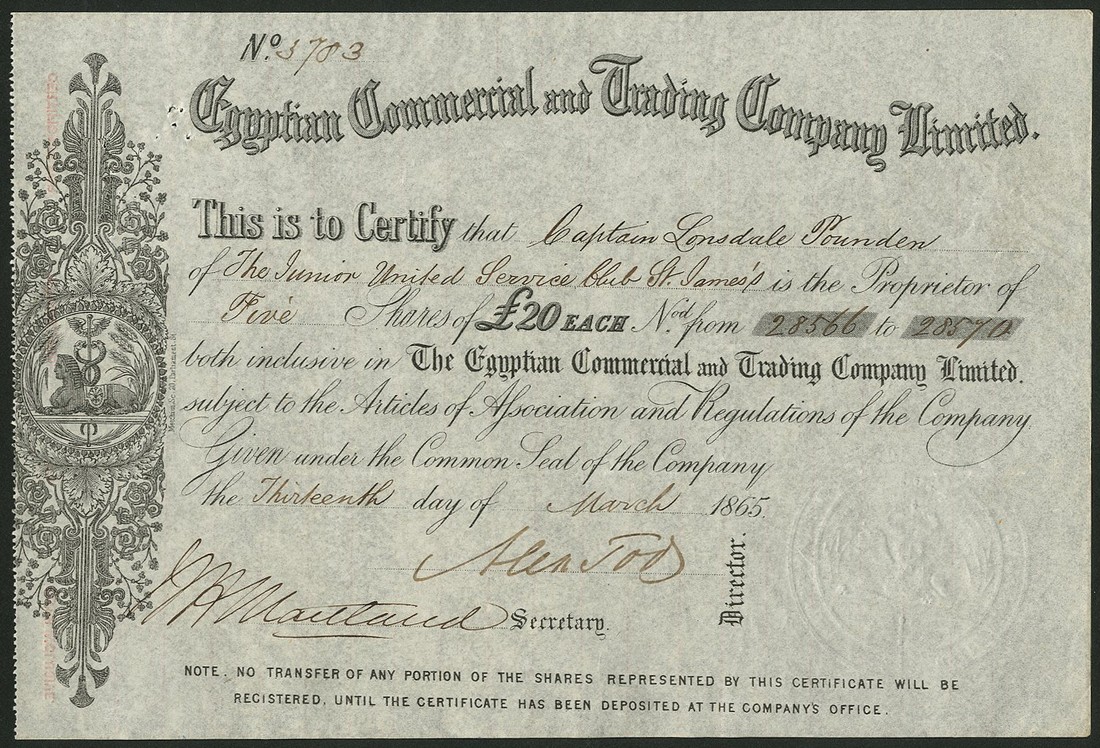 Nº 3783
Egyptian Commercial and Trading Company Limited.
This is to Certify that Captain Lonsdale Pounden
of The Junior United Service Club St. James's is the Proprietor of
Five Shares of £20 EACH Nod. from 28566 to 28570
both inclusive in The Egyptian Commercial and Trading Company Limited.
subject to the Articles of Association and Regulations of the Company.
Given under the Common Seal of the Company
the Thirteenth day of March 1865.
Alex Tod
Director.
Maitland Secretary.
NOTE. NO TRANSFER OF ANY PORTION OF THE SHARES REPRESENTED BY THIS CERTIFICATE WILL BE
REGISTERED, UNTIL THE CERTIFICATE HAS BEEN DEPOSITED AT THE COMPANY'S OFFICE.